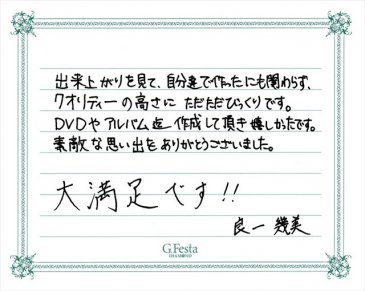 出来上がりを見て、自分達で作ったにも関わらず、
クオリティーの高さに ただただびっくりです。
DVDや アルバム迄 作成して頂き嬉しかったです。
素敵な思い出を ありがとうございました。
大満足です!!
良一 幾美
G.Festa
DIAMOND